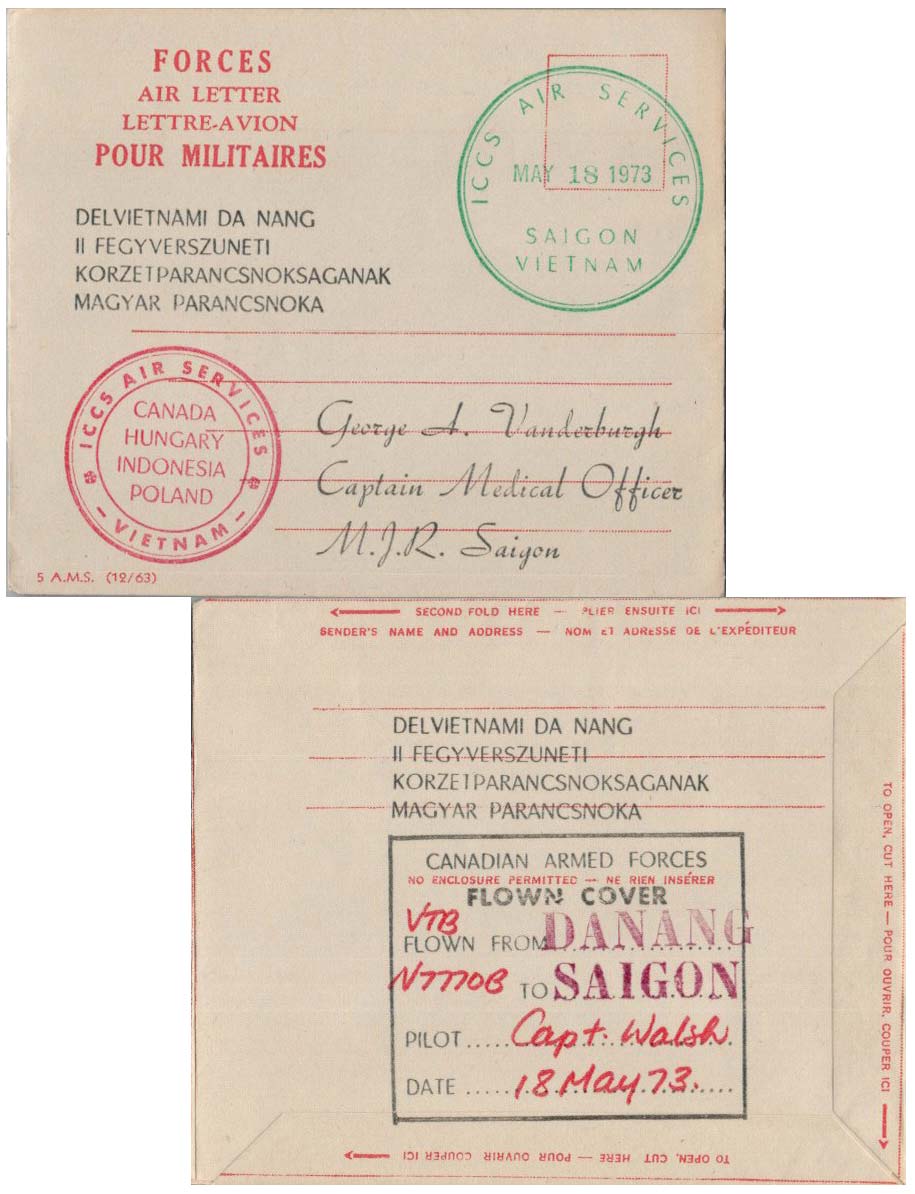 FORCES
AIR LETTER
LETTRE-AVION
POUR MILITAIRES
ICCS AIR SERVICES
MAY 18 1973
SAIGON
VIETNAM
DELVIETNAMI DA NANG
II FEGYVERSZUNETI
KORZETPARANCSNOKSAGANAK
MAGYAR PARANCSNOKA
ICCS AIR SERVICES
CANADA
HUNGARY
INDONESIA
POLAND
- VIETNAM -
George A. Vanderburgh
Captain Medical Officer
M.J.R. Saigon
5 A.M.S. (12/63)
SECOND FOLD HERE — PLIER ENSUITE ICI
SENDER'S NAME AND ADDRESS — NOM ET ADRESSE DE L'EXPÉDITEUR
DELVIETNAMI DA NANG
II FEGYVERSZUNETI
KORZETPARANCSNOKSAGANAK
MAGYAR PARANCSNOKA
CANADIAN ARMED FORCES
NO ENCLOSURE PERMITTED — NE RIEN INSÉRER
FLOWN COVER
VTB
FLOWN FROM DANANG
N7770B TO SAIGON
PILOT ..... Capt. Walsh
DATE ..... 18 May 73.
TO OPEN, CUT HERE — POUR OUVRIR, COUPER ICI
TO OPEN, CUT HERE — POUR OUVRIR COUPER ICI